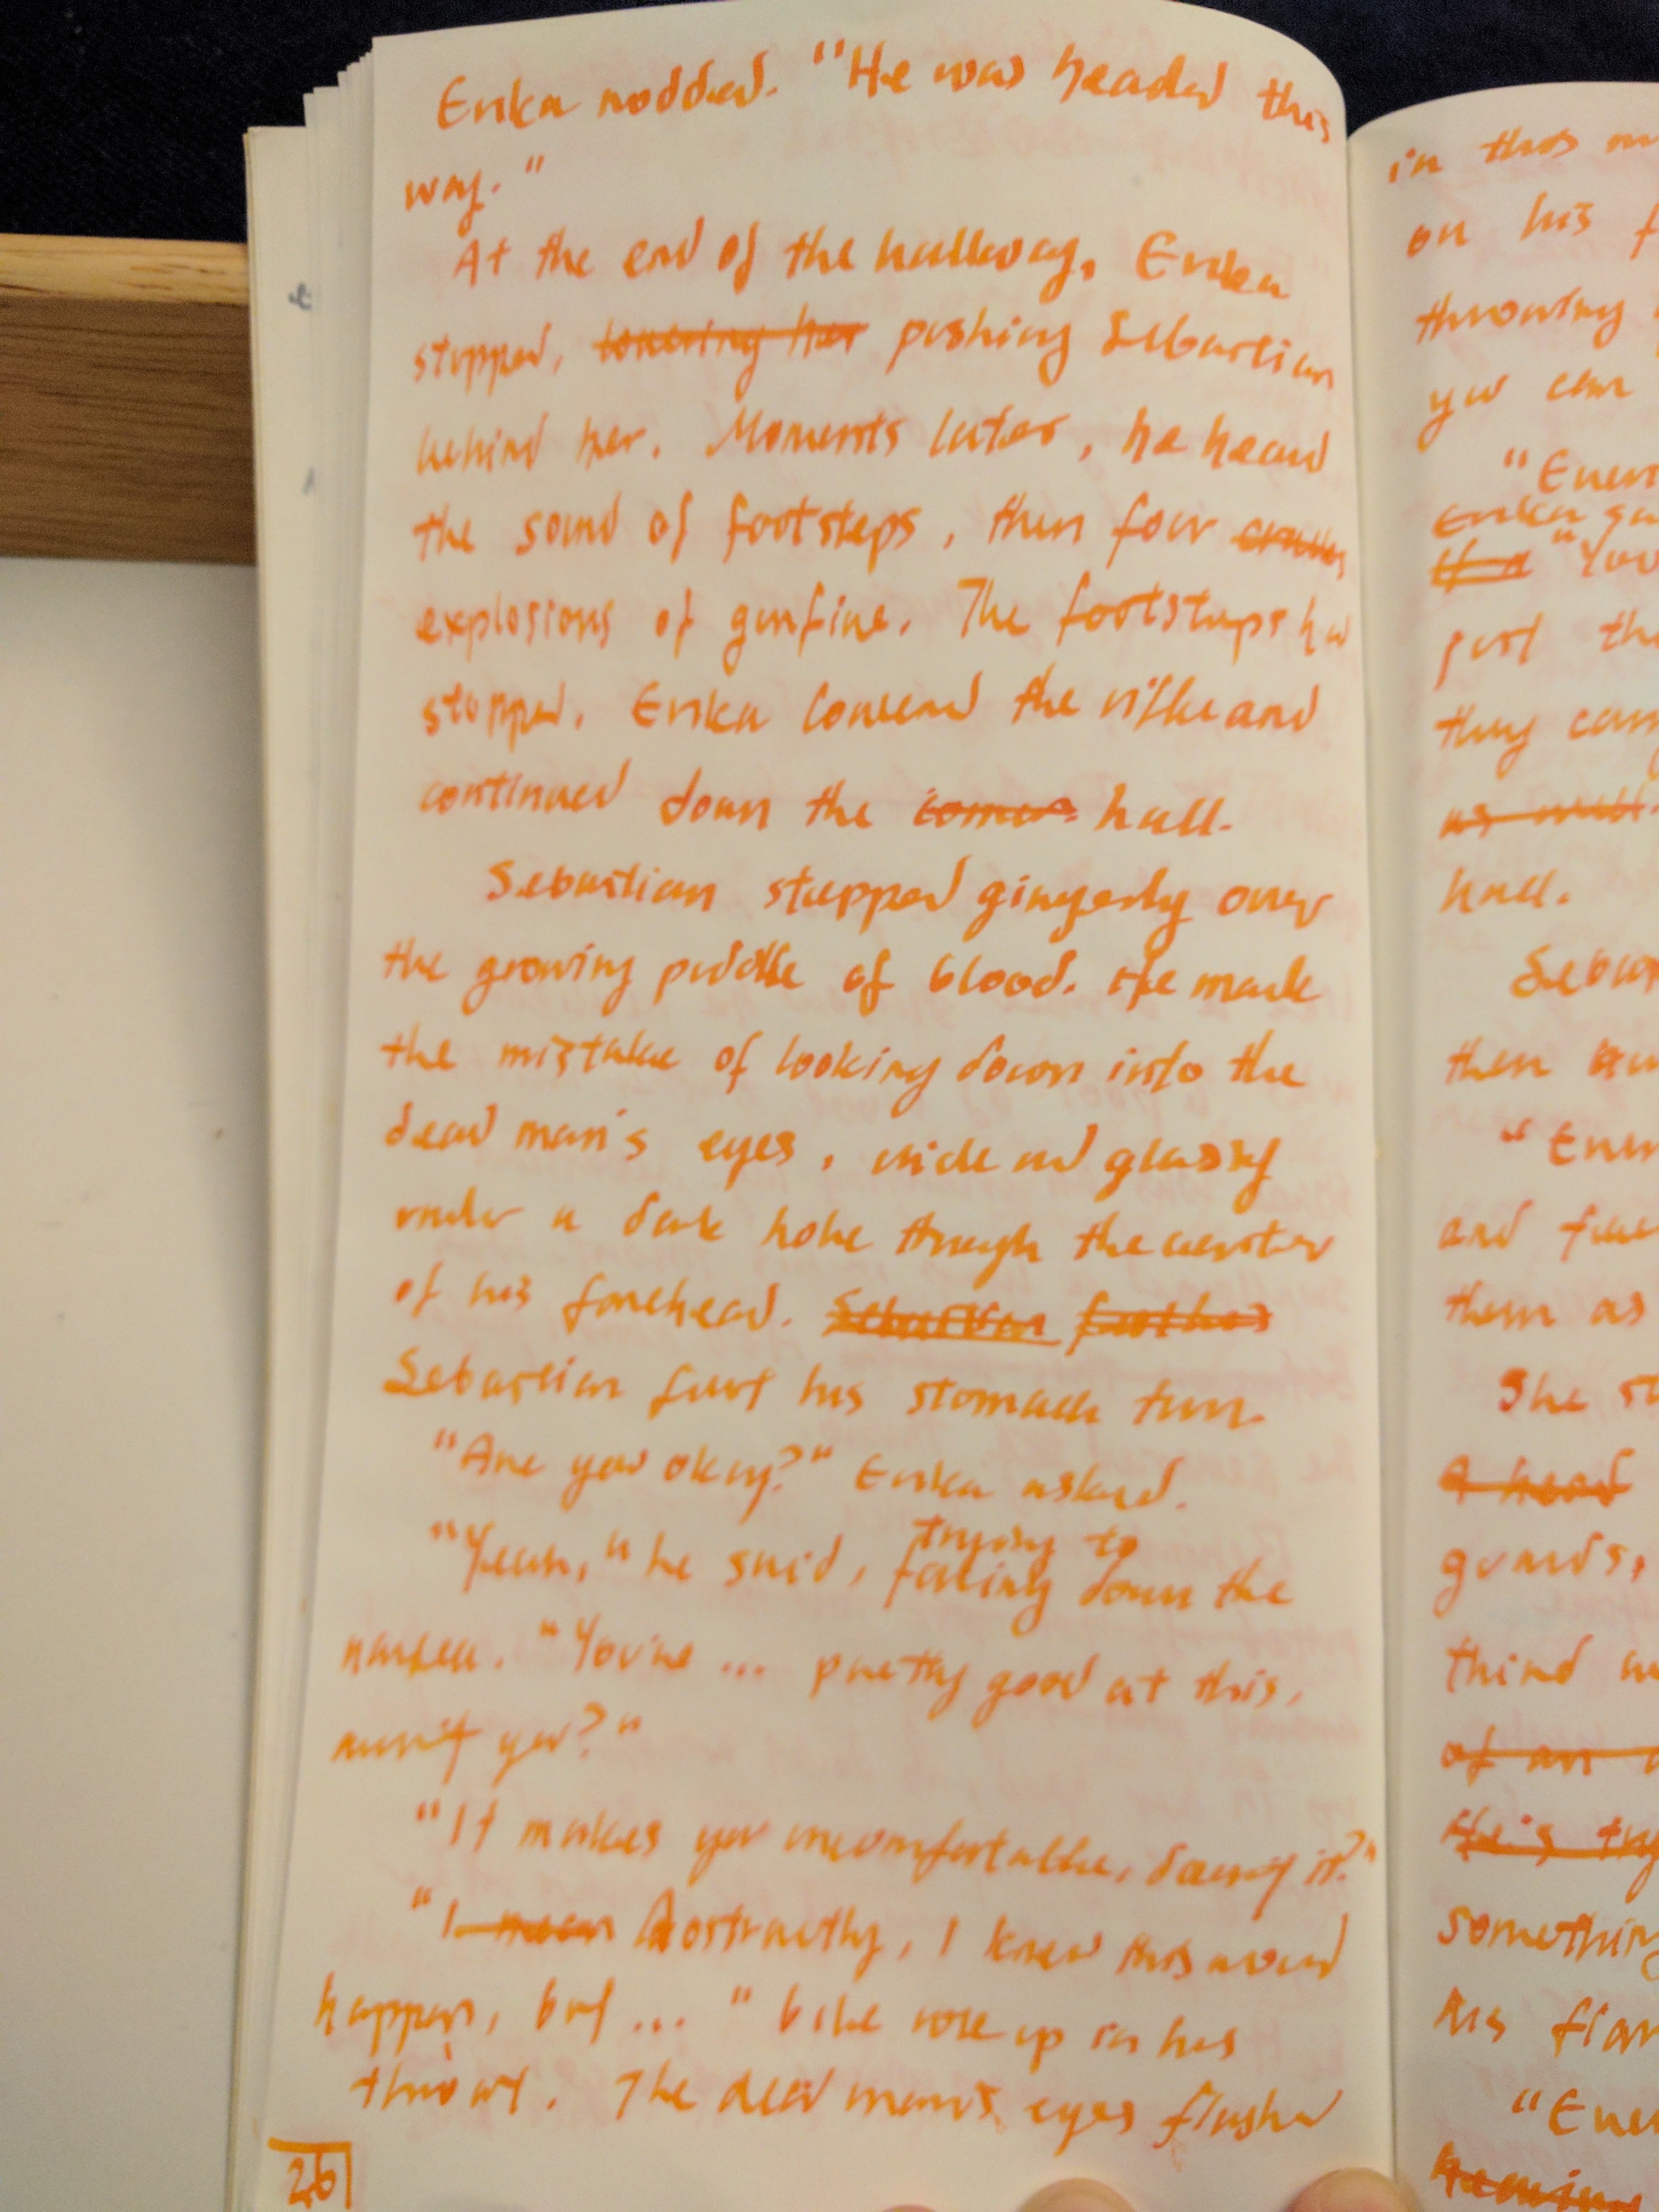 Erika nodded. "He was headed this
way."
At the end of the hallway, Erika
stopped, lowering her pushing Sebastian
behind her. Moments later, he heard
the sound of footsteps, then four
explosions of gunfire. The footsteps had
stopped. Erika lowered the rifle and
continued down the corner hall.
Sebastian stepped gingerly over
the growing puddle of blood. He made
the mistake of looking down into the
dead man's eyes, wide and glassy
under a dark hole through the center
of his forehead. Sebastian
Sebastian felt his stomach turn.
"Are you okay?" Erika asked.
trying to
"Yeah," he said, forcing down the
nausea. "You're... pretty good at this,
aren't you?"
"It makes you uncomfortable, doesn't it?"
"I mean Abstractly, I knew this would
happen, but..." bile rose up in his
throat. The dead man's eyes flashed
26
in this
on his
throwing
you can
Erika
"You
just the
they
hall.
then
and
them as
She
A head
guards,
third
of an
He's
something
his